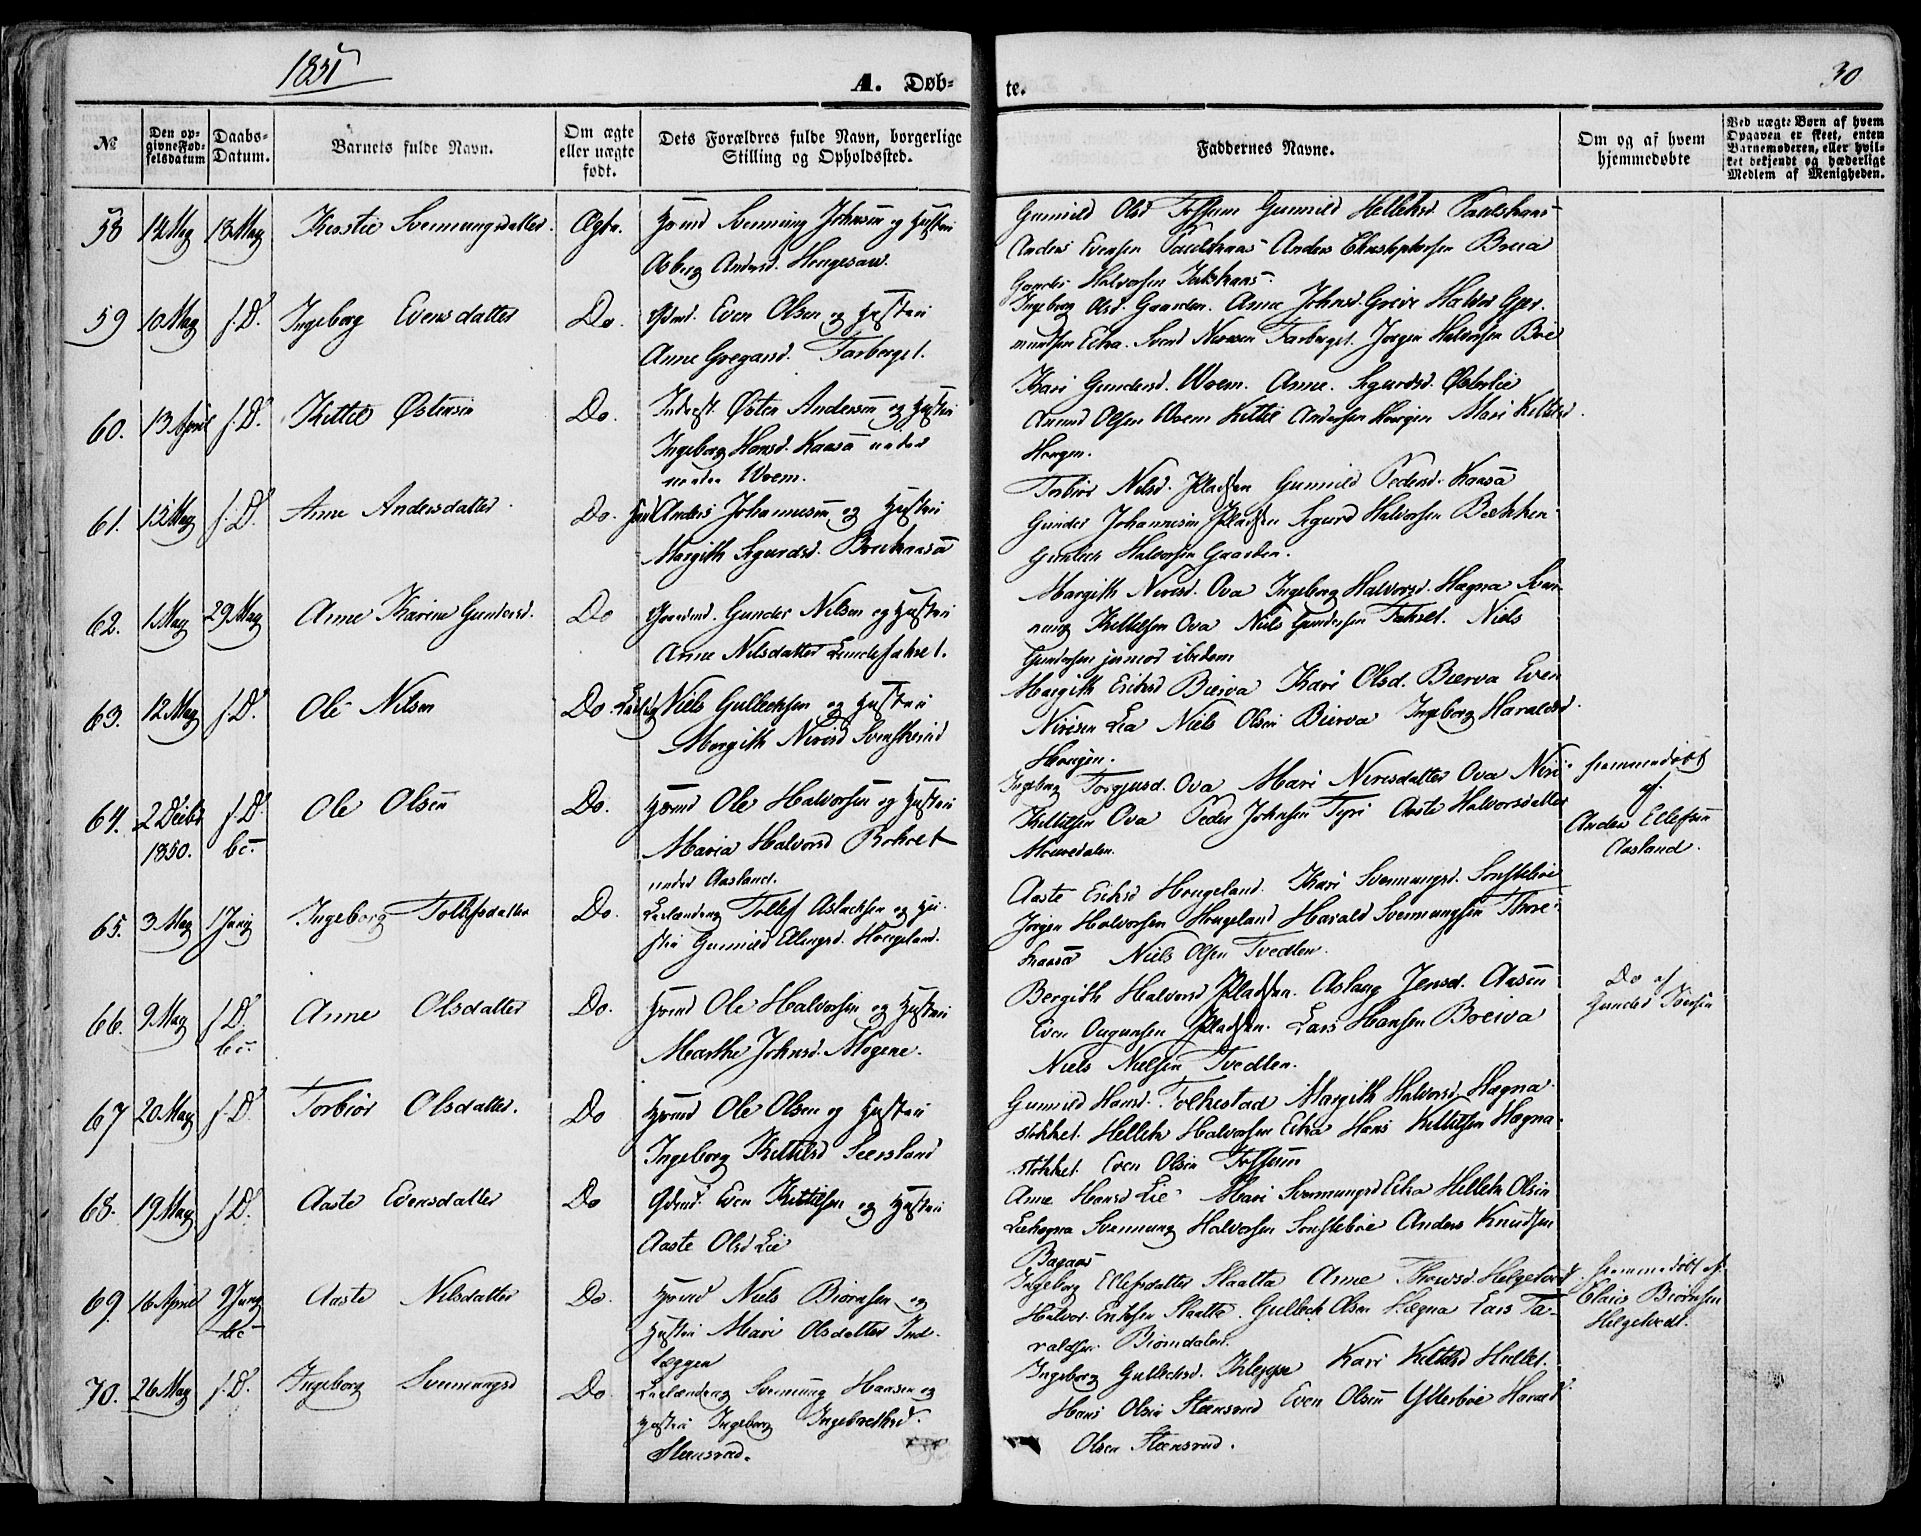 1851
A. Døb-
te.
30
№
Den op-
givne Fød-
selsdatum
Daabs-
Datum.
Barnets fulde Navn.
Om ægte
eller uægte
født.
Dets Forældres fulde Navn, borgerlige
Stilling og Opholdssted.
Faddernes Navne.
Om og af hvem
hjemmedøbte
Ved uægte Børn af hvem
Opgaven er skeet, enten
Barnemoderen, eller hvil-
ket bekjendt og hæderligt
Medlem af Menigheden.
58 12 May 18 May Kirstie Svennungsdatter. Ægte.
Svennung Johnsen og Hustru
Asberg Andersd. Hengesaw.
Gunnild Olsd Tossum Gunnild Helleksd.
Anders Evensen Anders Christophersen
Gunder Halvorsen
59 10 May s. D. Ingeborg Evensdatter Do.
Even Olsen og Hustru
Anne Gregard. Farberget.
Ingeborg Olsd. Gaarden. Anne Johnsd. Greve Halvor Gjer-
mundsen Eika. Svend Farberget. Jørgen Halvorsen Boe
60. 13 April s. D. Kittel Østensen Do.
Østen Andersen og Hustru
Ingeborg Hansd. Kaasa under
Woem.
Kari Gundersd. Woem. Anne. Sigurdsd. Østerlie
Amund Olsen Woem Kittil Andersen Haugen Mari Kittilsd.
Haugen.
61. 13 May s. D. Anne Andersdatter. Do.
Anders Johannesen og Hustru
Margith Sigurdsd. Breskaasa
Torbior Nilsd. Pladsen Gunnild Pedersd. Kaasa
Gunder Johannesen Pladsen Sigurd Halvorsen Bækken.
Gunleik Halvorsen Gaarden.
62. 1 May 29 May Anne Karine Gundersd. Do
Gunder Nilsen og Hustru
Anne Nilsdatter Lundefahret.
Margith Nerisd. Ova Ingeborg Halvorsd. Hagna Sven-
nung Kittilsen Ova Niels Gundersen Fahret. Niels
Gundersen junior ibidem
63. 12 May s. D. Ole Nilsen Do.
Niels Gulleksen og Hustru
Margith Nerisd Svenskerud
Margith Eriksd Bierva Kari Olsd. Bierva Even
Nirisen Lia Niels Olsen Bierva Ingeborg Haraldsd.
Haugen.
64. 2 Decbr s. D. Ole Olsen Do.
1850. bc.
Ole Halvorsen og Hustru
Maria Halvorsd Bokret
under Aasland.
Ingeborg Torgjusd. Ova Mari Nerisdatter Ova Neri
Kittilsen Ova Peder Johnsen Tyri Aaste Halvorsdatter
Mouredalen.
hjemmedøbt
af
Anders Ellefsen
Aasland.
65. 3 May 1 Juny Ingeborg Tollefsdatter Do.
Leilænding Tollef Aslaksen og Hu-
stru Gunnild Ellingsd. Haugeland.
Aaste Eriksd Haugeland. Kari Svennungsd. Sønstebøe
Jørgen Halvorsen Haugeland Harald Svennungsen Thore-
kaasa Niels Olsen Tvedten.
66. 9 May s. D. Anne Olsdatter Do.
bc.
Ole Halvorsen og Hustru
Marthe Johnsd. Mogene.
Bergith Halvorsd Pladsen. Aslaug Jensd. Aasen
Even Pladsen. Lars Hansen Boeiva
Niels Nielsen Tvedten.
Do af
Gunder
67 20 May s. D. Torbior Olsdatter. Do
Ole Olsen og Hustru
Ingeborg Kittilsd Seersland
Gunnild Hansd. Folkestad Margith Halvorsd. Hagna-
stokket. Hellek Halvorsen Eika Hans Kittilsen Hagna-
stokket Even Olsen Tossum
68. 19 May s. D. Aaste Evensdatter Do
Even Kittilsen og Hustru
Aaste Olsd Lie
Anne Hansd Lie Mari Svennungsd Eika Hellek Olsen
Leehagna Svennung Halvorsen Sønstebøe Anders Knudsen
69. 16 April 9 Juny Aaste Nilsdatter Do.
bc
Niels Biørnsen og
Hustru Mari Olsdatter Ind-
læggen
Ingeborg Ellefsdatter Slaatta Anne Thorsd. Helgetvedt
Halvor Eriksen Slaatta. Gullek Olsen Hægna Lars Ta-
raldsen Biørndalen.
hjemmedøbt af
Claus Biørnsen
Helgetvedt.
70. 26 May s. D. Ingeborg Svennungsd Do.
Leilænding Svennung Hansen og
Hustru Ingeborg Ingebretsd.
Steensrud.
Ingeborg Gulleksd. Kleppe Kari Kittilsd Hullet.
Hans Olsen Steensrud Even Olsen Ytterbøe Harald
Olsen Steensrud.